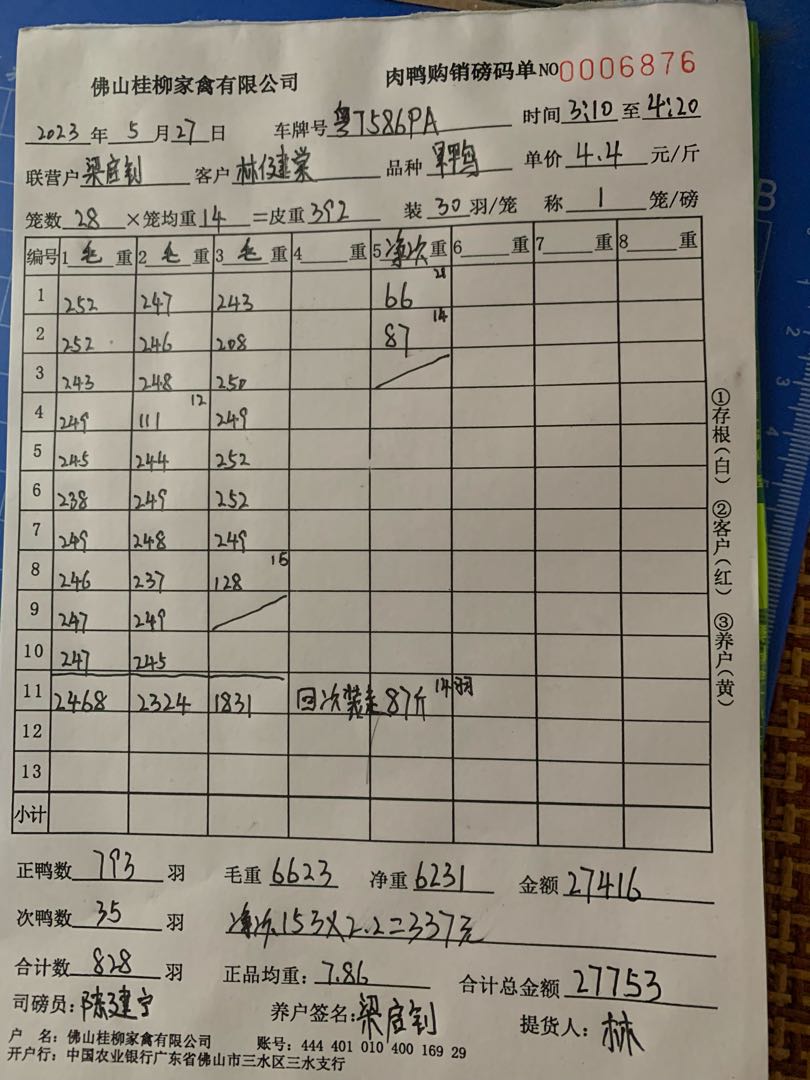 佛山桂柳家禽有限公司 肉鸭购销磅码单 NO 0006876
2023 年 5 月 27 日 车牌号 粤7586PA 时间 3:10 至 4:20
联营户 梁启钊 客户 林建荣 品种 单价 4.4 元/斤
笼数 28 ×笼均重 14 =皮重 392 装 30 羽/笼 称 1 笼/磅
编号 1 毛 重 2 毛 重 3 毛 重 4 重 5 净次 重 6 重 7 重 8 重
1 252 247 243 66
2 252 246 208 87 14
3 243 248 250
4 249 111 12 249
5 245 244 252
6 238 249 252
7 249 248 249
8 246 237 128
9 247 249
10 247 245
11 2468 2324 1831 回次装走87斤 14羽
12
13
小计
正鸭数 793 羽 毛重 6623 净重 6231 金额 27416
次鸭数 35 羽 净次 153×2.2=337元
合计数 828 羽 正品均重: 7.86 合计总金额 27753
司磅员: 陈建宁 养户签名: 梁启钊 提货人: 林
户 名: 佛山桂柳家禽有限公司 账号: 444 401 010 400 169 29
开户行: 中国农业银行广东省佛山市三水区三水支行
①存根(白) ②客户(红) ③养户(黄)